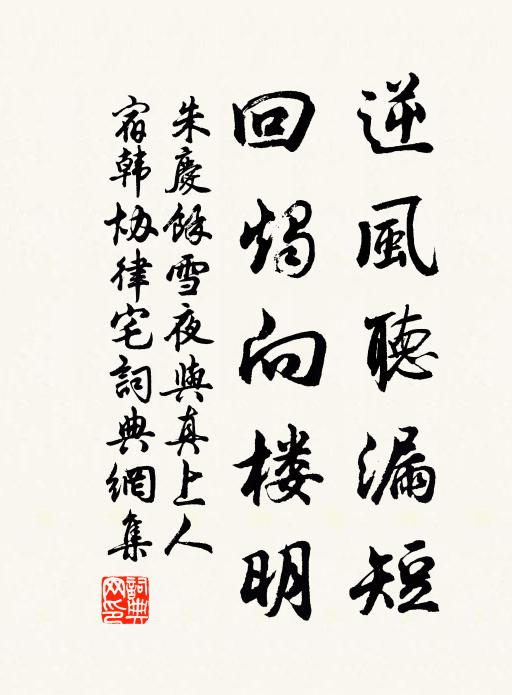 逆風聽漏短
回燭向楼明
朱慶餘雪夜與真上人
宿韩协律宅詞典網集
詞典网印